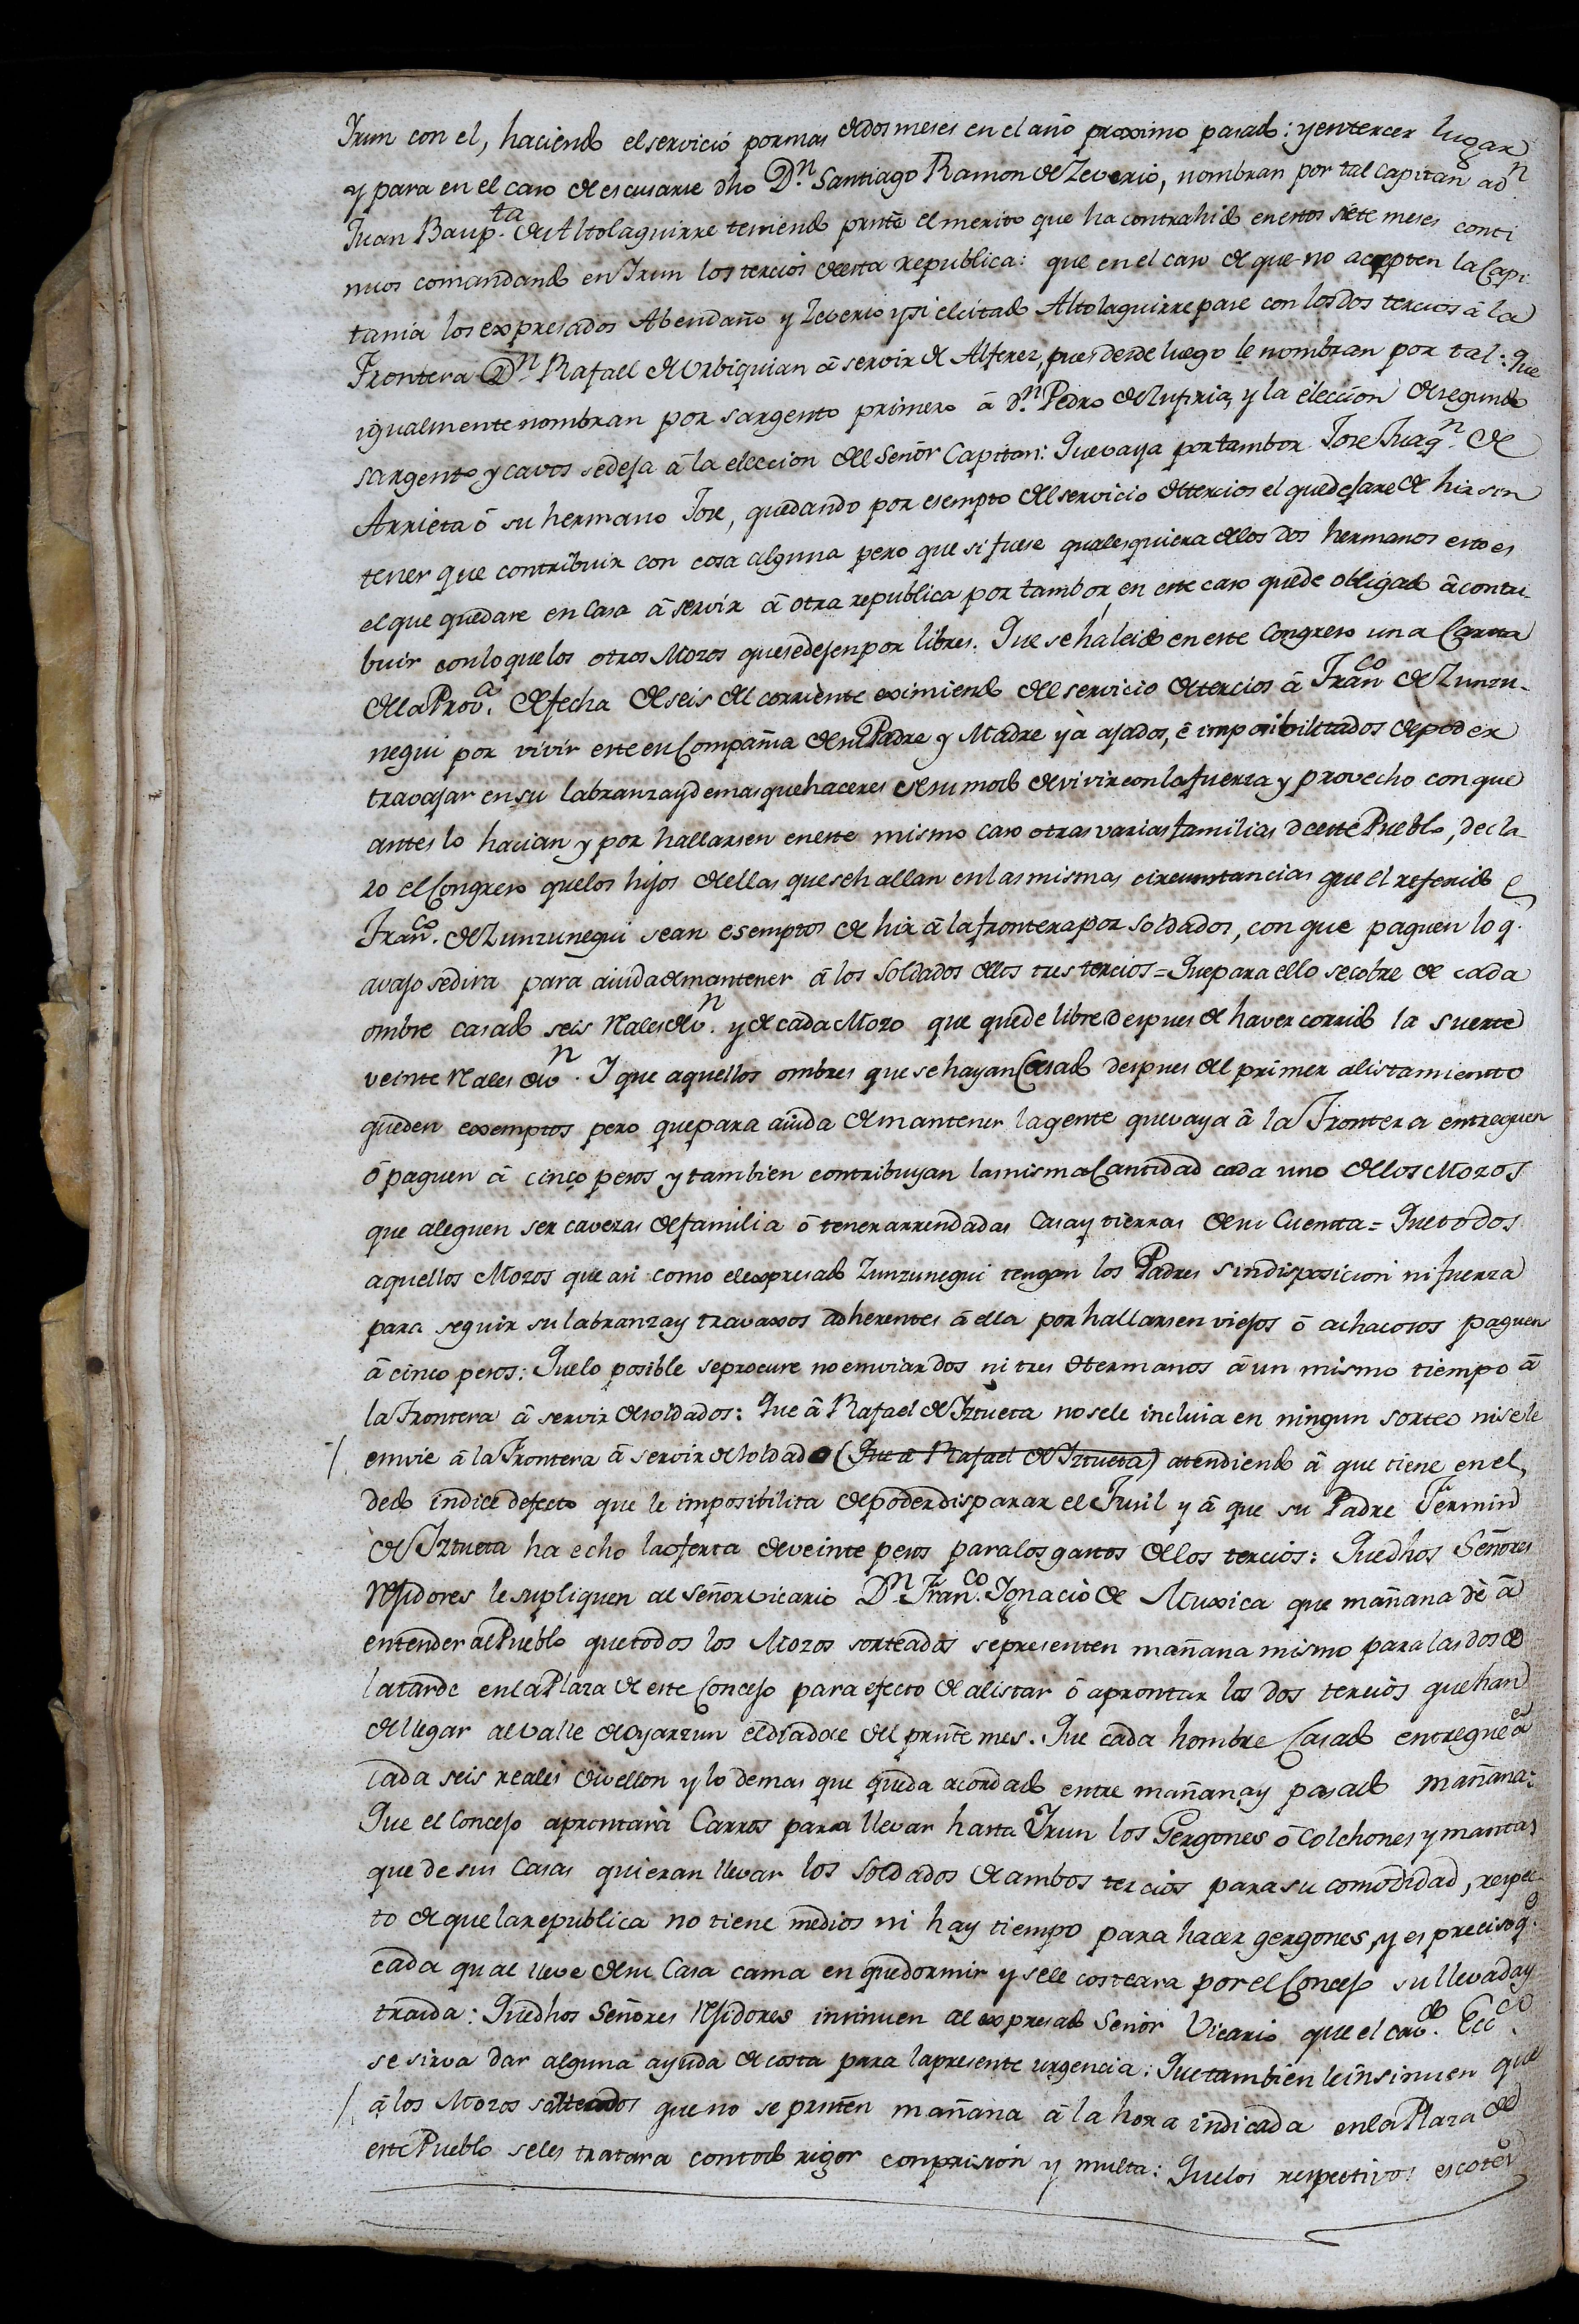 Irun con el, haciendo el servicio por mas de dos meses en el año proximo pasado: y en tercer lugar
y para en el caso de escusarse dho D.n Santiago Ramon de Zeverio, nombran por tal Capitan a D.n
Juan Baup.ta de Altolaguirre teniendo prnte el merito que ha contrahido en estos siete meses conti
nuos comandando en Irun los tercios de esta republica: que en el caso de que no acepten la Capi-
tania los expresados Abendaño y Zeverio y si el citado Altolaguirre pase con los dos tercios â la
Frontera D.n Rafael de Urbiquian â servir de Alferez, pues desde luego le nombran por tal: Que
igualmente nombran por sargento primero â D.n Pedro de Zufiria, y la elección de segundo
sargento y cavos se deja â la eleccion del Señor Capitan: Que vaya por tambor Jose Juaq.n de
Arrieta ó su hermano Jose, quedando por esempto del servicio de tercios el que dejare de hir sin
tener que contribuir con cosa alguna pero que si fuese qualesquiera de los dos hermanos esto es
el que quedare en Casa â servir â otra republica por tambor, en este caso quede obligado â contri-
buir con lo que los otros Mozos que se dejen por libres. Que se ha leido en este Congreso una Carta
de la Prov.a de fecha de seis del corriente eximiendo del servicio de tercios â Fran.co de Zunzu-
negui por vivir este en Compañia de su Padre y Madre yà ajados, ê imposibilitados de poder
travajar en su labranza y demas quehaceres de su modo de vivir con la fuerza y provecho con que
antes lo hacian y por hallarsen en este mismo caso otras varias familias de este Pueblo, decla-
ro el Congreso que los hijos de ellas que se hallan en las mismas circumstancias que el referido
Fran.co de Zunzunegui sean esemptos de hir â la frontera por soldados, con que paguen lo q.e
avajo se dira para aiuda de mantener â los Soldados de los tres tercios = Que para ello se cobre de cada
ombre casado seis Rales de v.n y de cada Mozo que quede libre despues de haver corrido la suerte
veinte Rales de v.n. Y que aquellos ombres que se hayan Casado despues del primer alistamiento
queden exemptos pero que para aiuda de mantener la gente que vaya â la Frontera entreguen
ó paguen â cinco pesos y tambien contribuyan la misma Cantidad cada uno de los Mozos
que aleguen ser cavezas de familia ó tener arrendadas Casa y tierras de su Cuenta = Que todos
aquellos Mozos que asi como el expresado Zunzunegui tengan los Padres sin disposicion ni fuerza
para seguir su labranza y travaxos adherentes â ella por hallarsen viejos ó achacosos paguen
â cinco pesos: Que lo posible se procure no enviar dos ni tres Hermanos â un mismo tiempo â
la Frontera â servir de soldados: Que â Rafael de Iztueta no se le incluia en ningun sorteo ni se le
envie â la Frontera â servir de soldado (Que â Rafael de Iztueta) atendiendo â que tiene en el
dedo indice defecto que le imposibilita de poder disparar el Fusil y â que su Padre Fermin
de Iztueta ha echo la oferta de veinte pesos para los gastos de los tercios: Que dhos Señores
Rejidores le supliquen al Señor Vicario D.n Fran.co Ignacio de Muxica que mañana dè â
entender al Pueblo que todos los Mozos sorteados se presenten mañana mismo para las dos de
la tarde en la Plaza de este Concejo para efecto de alistar ó aprontar los dos tercios que han
de llegar al Valle de Oyarzun el dia doce del prnte mes. Que cada hombre Casado entregue â
cada seis reales de vellon y lo demas que queda acordado entre mañana y pasado mañana:
Que el Concejo aprontarà Carros para llevar hasta Irun los Gergones ó Colchones y mantas
que de sus Casas quieran llevar los Soldados de ambos tercios para su comodidad, respec-
to de que la republica no tiene medios ni hay tiempo para hacer gergones, y es preciso q.e
cada qual lleve de su Casa cama en que dormir y se le costeara por el Concejo su llevada y
traida: Que dhos Señores Rejidores insinuen al expresado Señor Vicario que el cav.do Ecc.co
se sirva dar alguna ayuda de costa para la presente urgencia: Que tambien le insinuen que
â los Mozos solteados que no se prnten mañana â la hora indicada en la Plaza de
este Pueblo se les tratara con todo rigor con prision y multa: Que los respectivos escotes